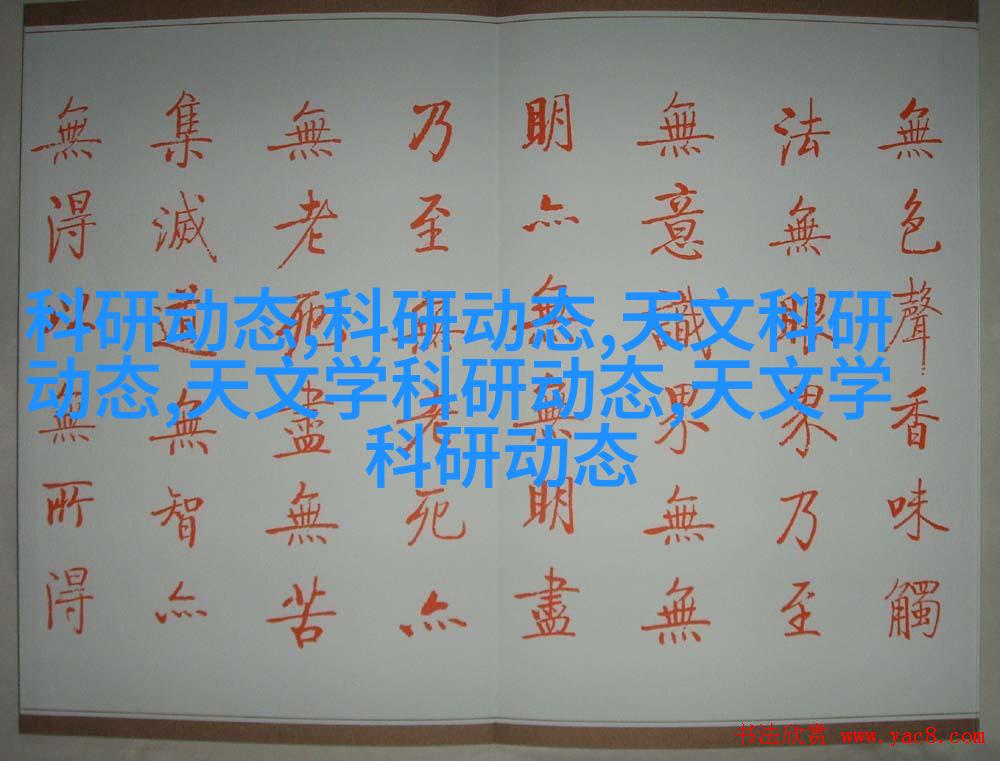 無色聲香味觸
法無眼界乃至
無意識界無無
明亦無無明盡
乃至無老死亦
無老死盡無苦
集滅道無智亦
無得以無所得
科研动态,科研动态,天文科研
动态,天文学科研动态,天文学
科研动态
书法欣赏 www.yac8.com